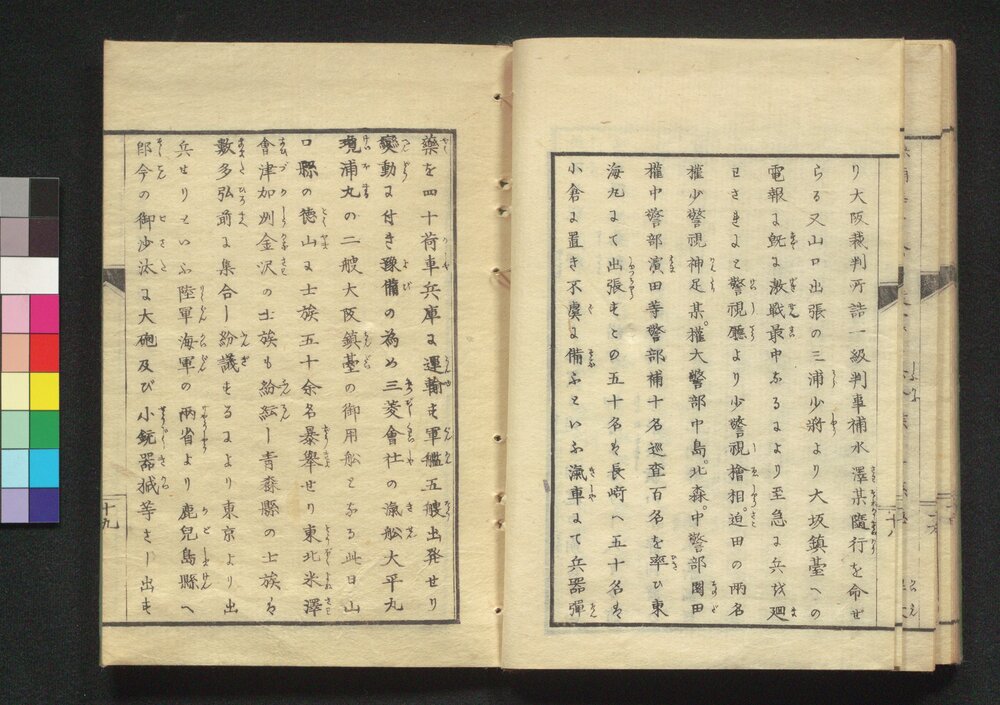 り大阪裁判所詰一級判事補水澤某隨行を命せ
らる又山口出張の三浦少将より大坂鎮臺への
電報に既に激戦最中なるより至急に兵を廻
せさきよと警視廳より少警視檜相迫田の両名
權少警視神足某權大警部中島北森中警部園田
權中警部濱田等警部補十名巡査百名を率ひ東
海丸にて出張もその五十名は長崎へ五十名は
小倉に置き不虞に備ふといふ瀛車にて兵器彈
藥を四十荷車兵庫に運輸も軍艦五艘出発せり
變動に付き豫備の為め三菱會仕の瀛舩大平丸
境浦丸の二艘大阪鎮臺の御用舩となる此日山
口縣の徳山に士族五十余名暴擧せり東北米澤
會津加州金沢の士族も紛紜し青森縣の士族は
數多弘前に集合し紛議もるより東京より出
兵せりといふ陸軍海軍の両省より鹿兒島縣へ
郎今の御沙汰に大砲及び小銃器械等さし出も
十九